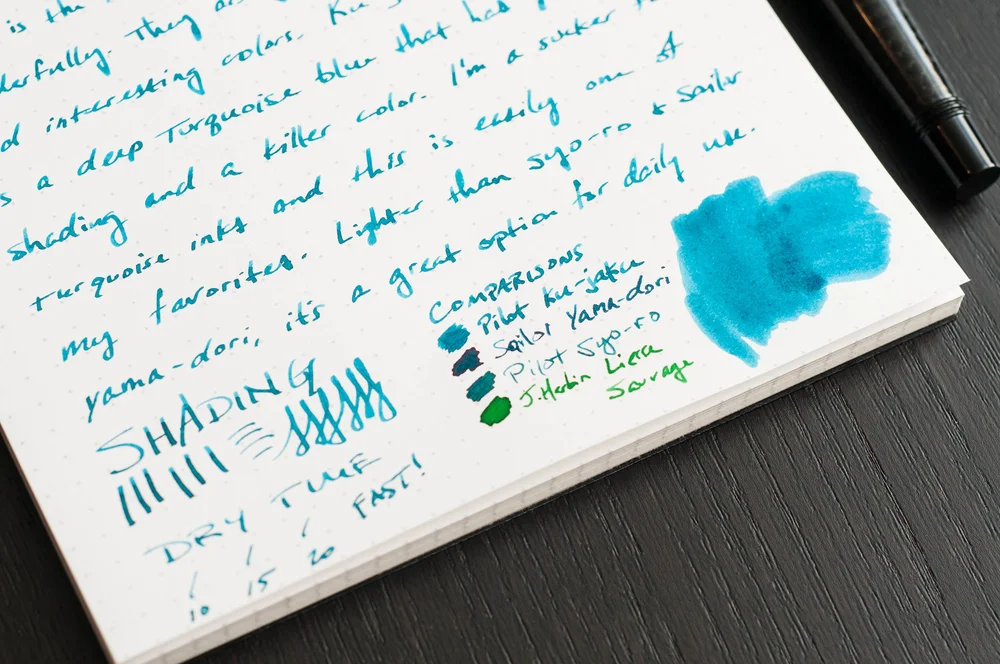 is the
They
interesting colors. Ku
a deep Turquoise blue that has
shading and a killer color. I'm a sucker
turquoise inks and this is easily one of
my favorites. Lighter than Syo-ro & Sailor
yama-dori, it's a great option for daily use.
SHADING
COMPARISONS
Pilot Ku-jaku
Sailor Yama-dori
Pilot Syo-ro
J. Herbin Lierre
Sauvage
DRY TIME
10 15 20 FAST!